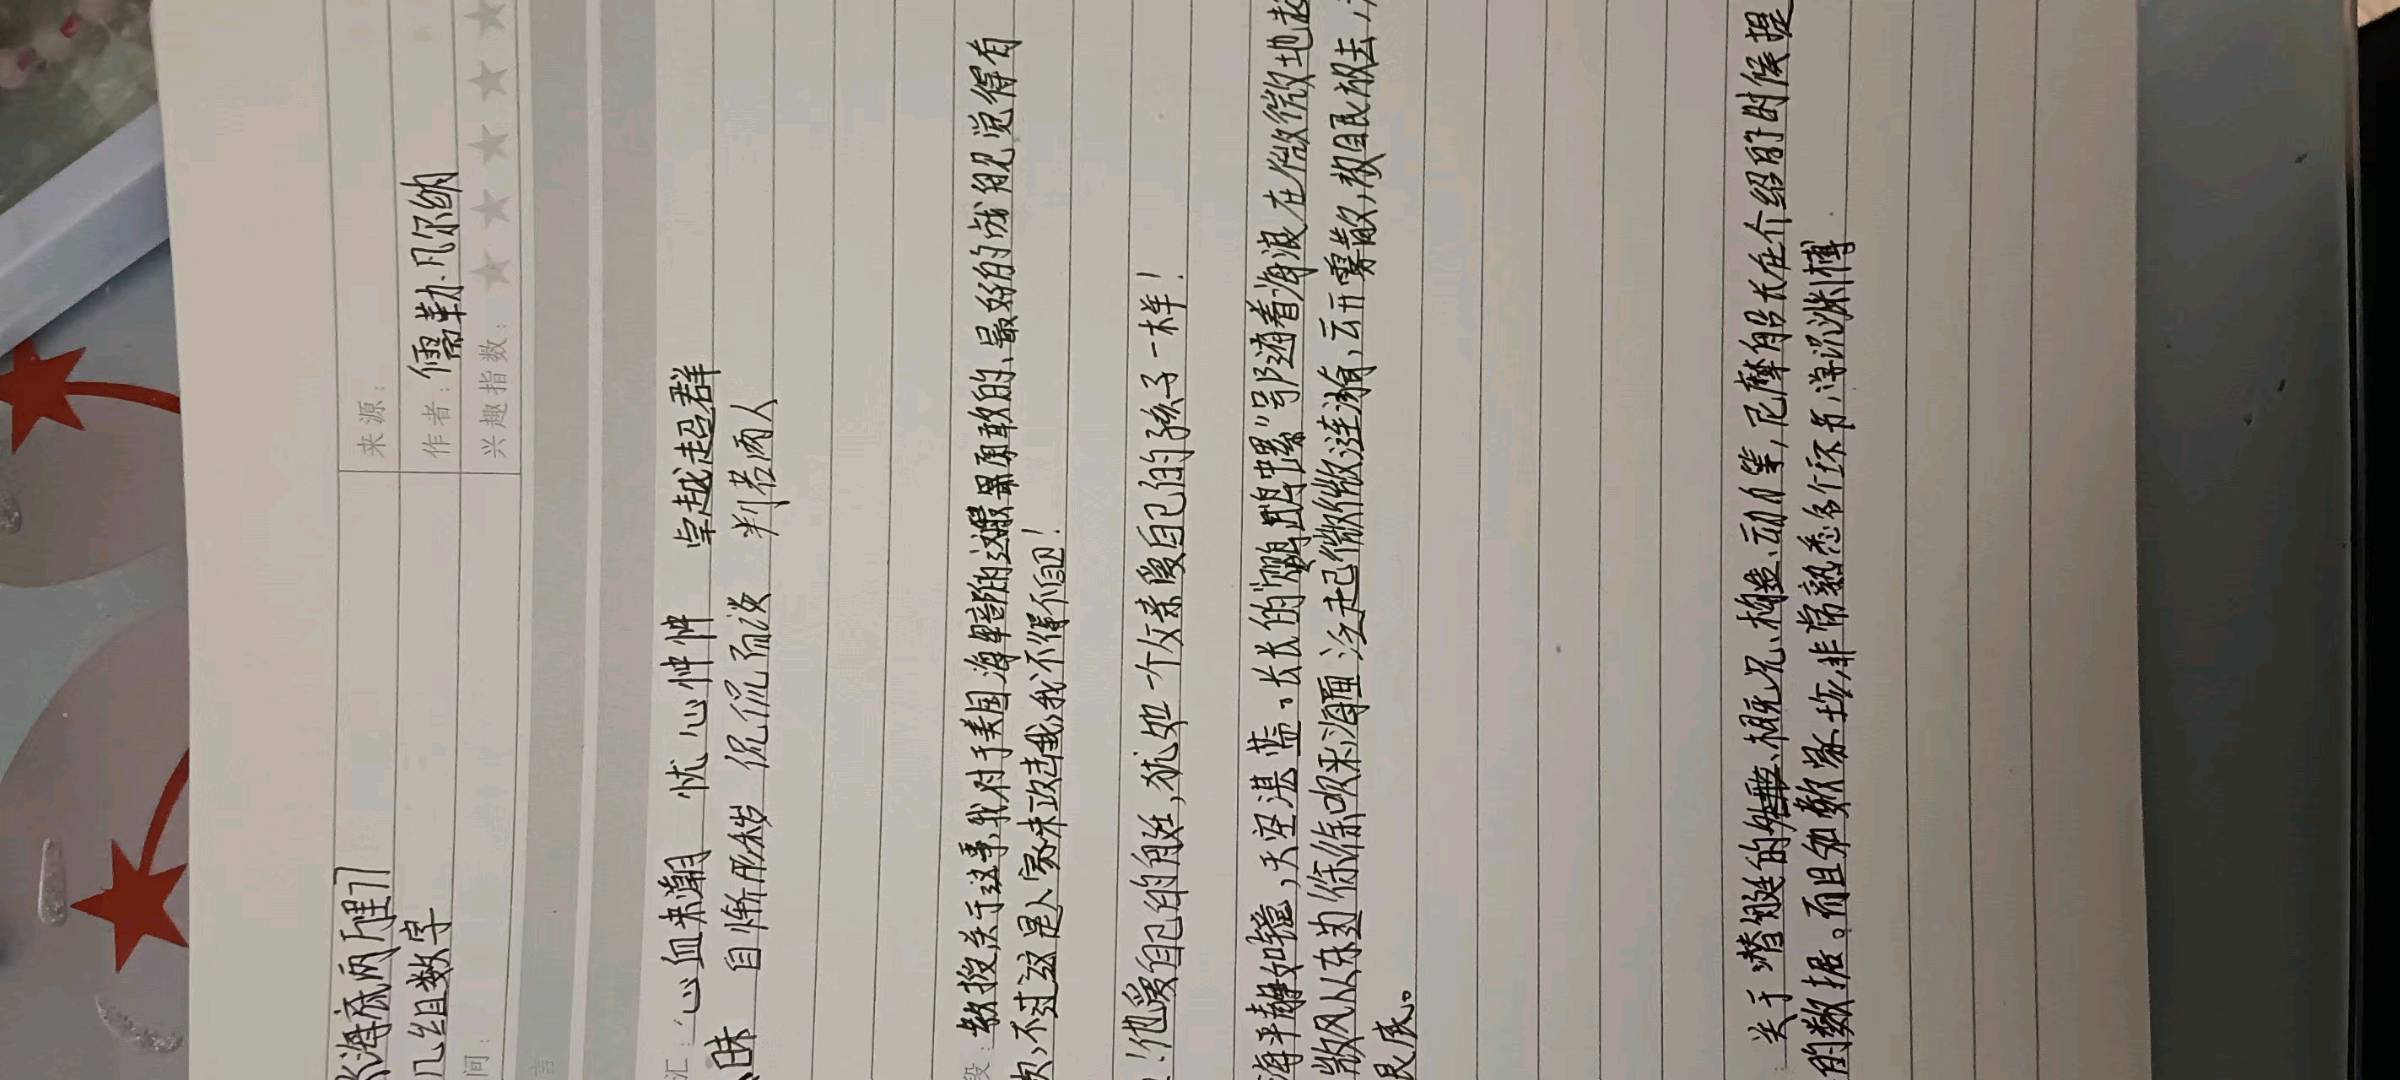 海底两万里
来源：
几组数字
作者：儒勒·凡尔纳
间：
兴趣指数：
言
汇：心血来潮 忧心忡忡 卓越超群
昧 自惭形秽 侃侃而谈 判若两人
段：教授，关于这事，我对于美国海军部的这艘果敢的、最好的战舰觉得有
次，不过这是人家来攻击我，我不得不自卫！
！他爱自己的艇，犹如一个父亲爱自己的孩子一样！
海平静如镜，天空湛蓝。长长的“鹦鹉螺”号随着海浪在微微地起
微风从东边徐徐吹来，海面泛起微微涟漪，云开雾散，极目民放去，
艮底。
：关于潜艇的概况、构造、动力等，尼摩船长在介绍的时候提
的数据。而且如数家珍，非常熟悉各个环节，学识渊博